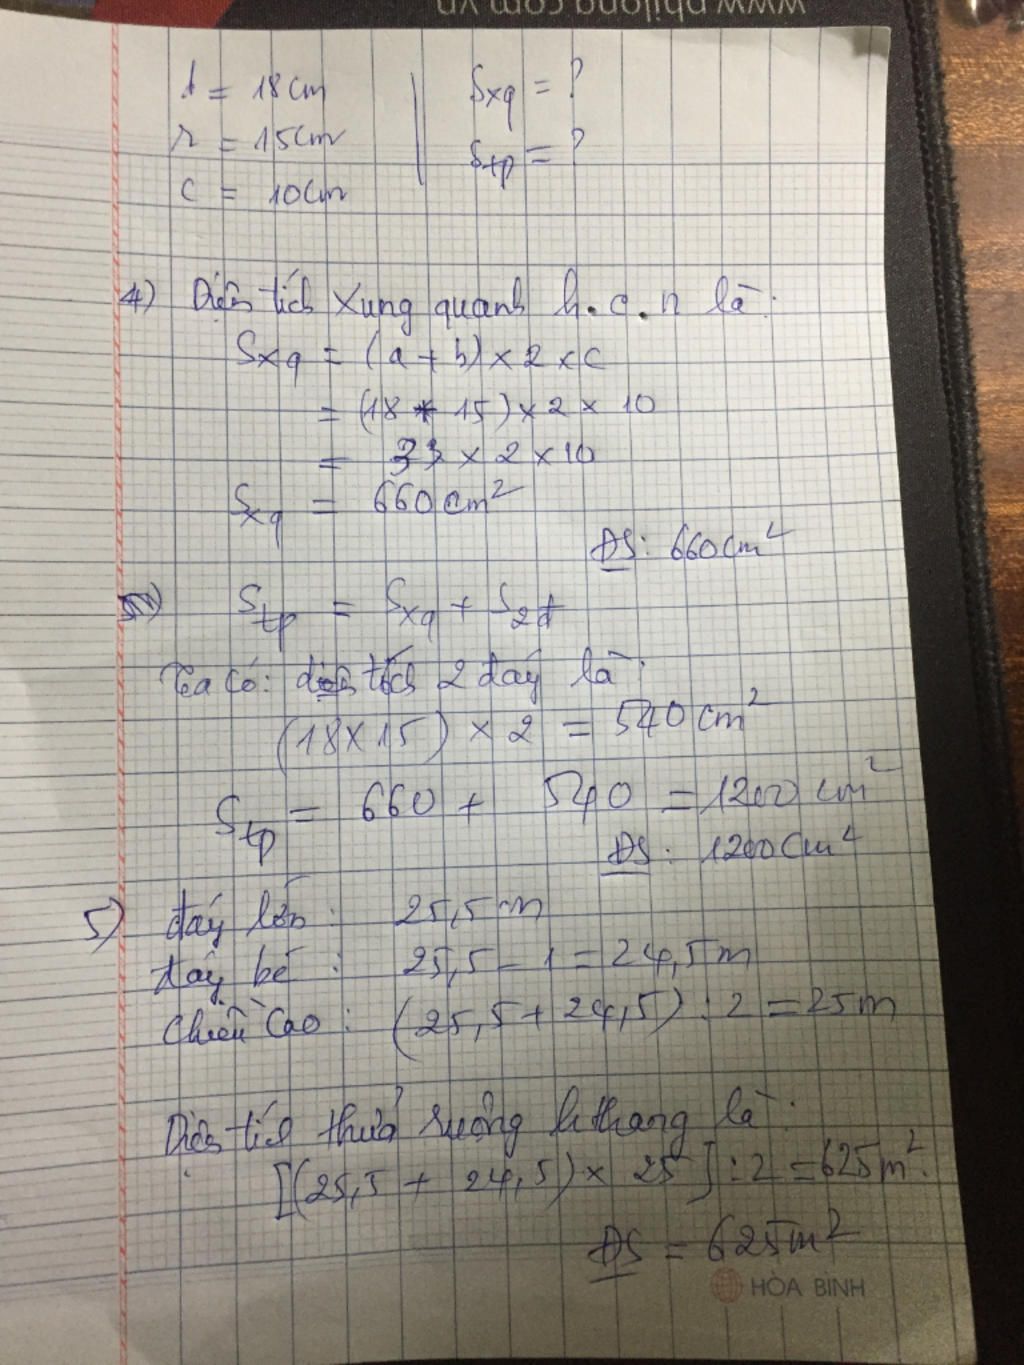 www.philong.com.vn
d = 18cm Sxq = ?
r = 15cm Stp = ?
c = 10cm
4) Diện tích xung quanh h.c.n là:
Sxq = (a + b) × 2 × c
= (18 + 15) × 2 × 10
= 33 × 2 × 10
Sxq = 660cm²
ĐS: 660cm²
Stp = Sxq + S2đ
Ta có: diện tích 2 đáy là:
(18 × 15) × 2 = 540cm²
Stp = 660 + 540 = 1200 cm²
ĐS: 1200cm²
5) đáy lớn: 25,5m
đáy bé: 25,5 - 1 = 24,5m
Chiều cao: (25,5 + 24,5) : 2 = 25m
Diện tích thửa ruộng hthang là:
[(25,5 + 24,5) × 25] : 2 = 625m².
ĐS = 625m²
HÒA BÌNH